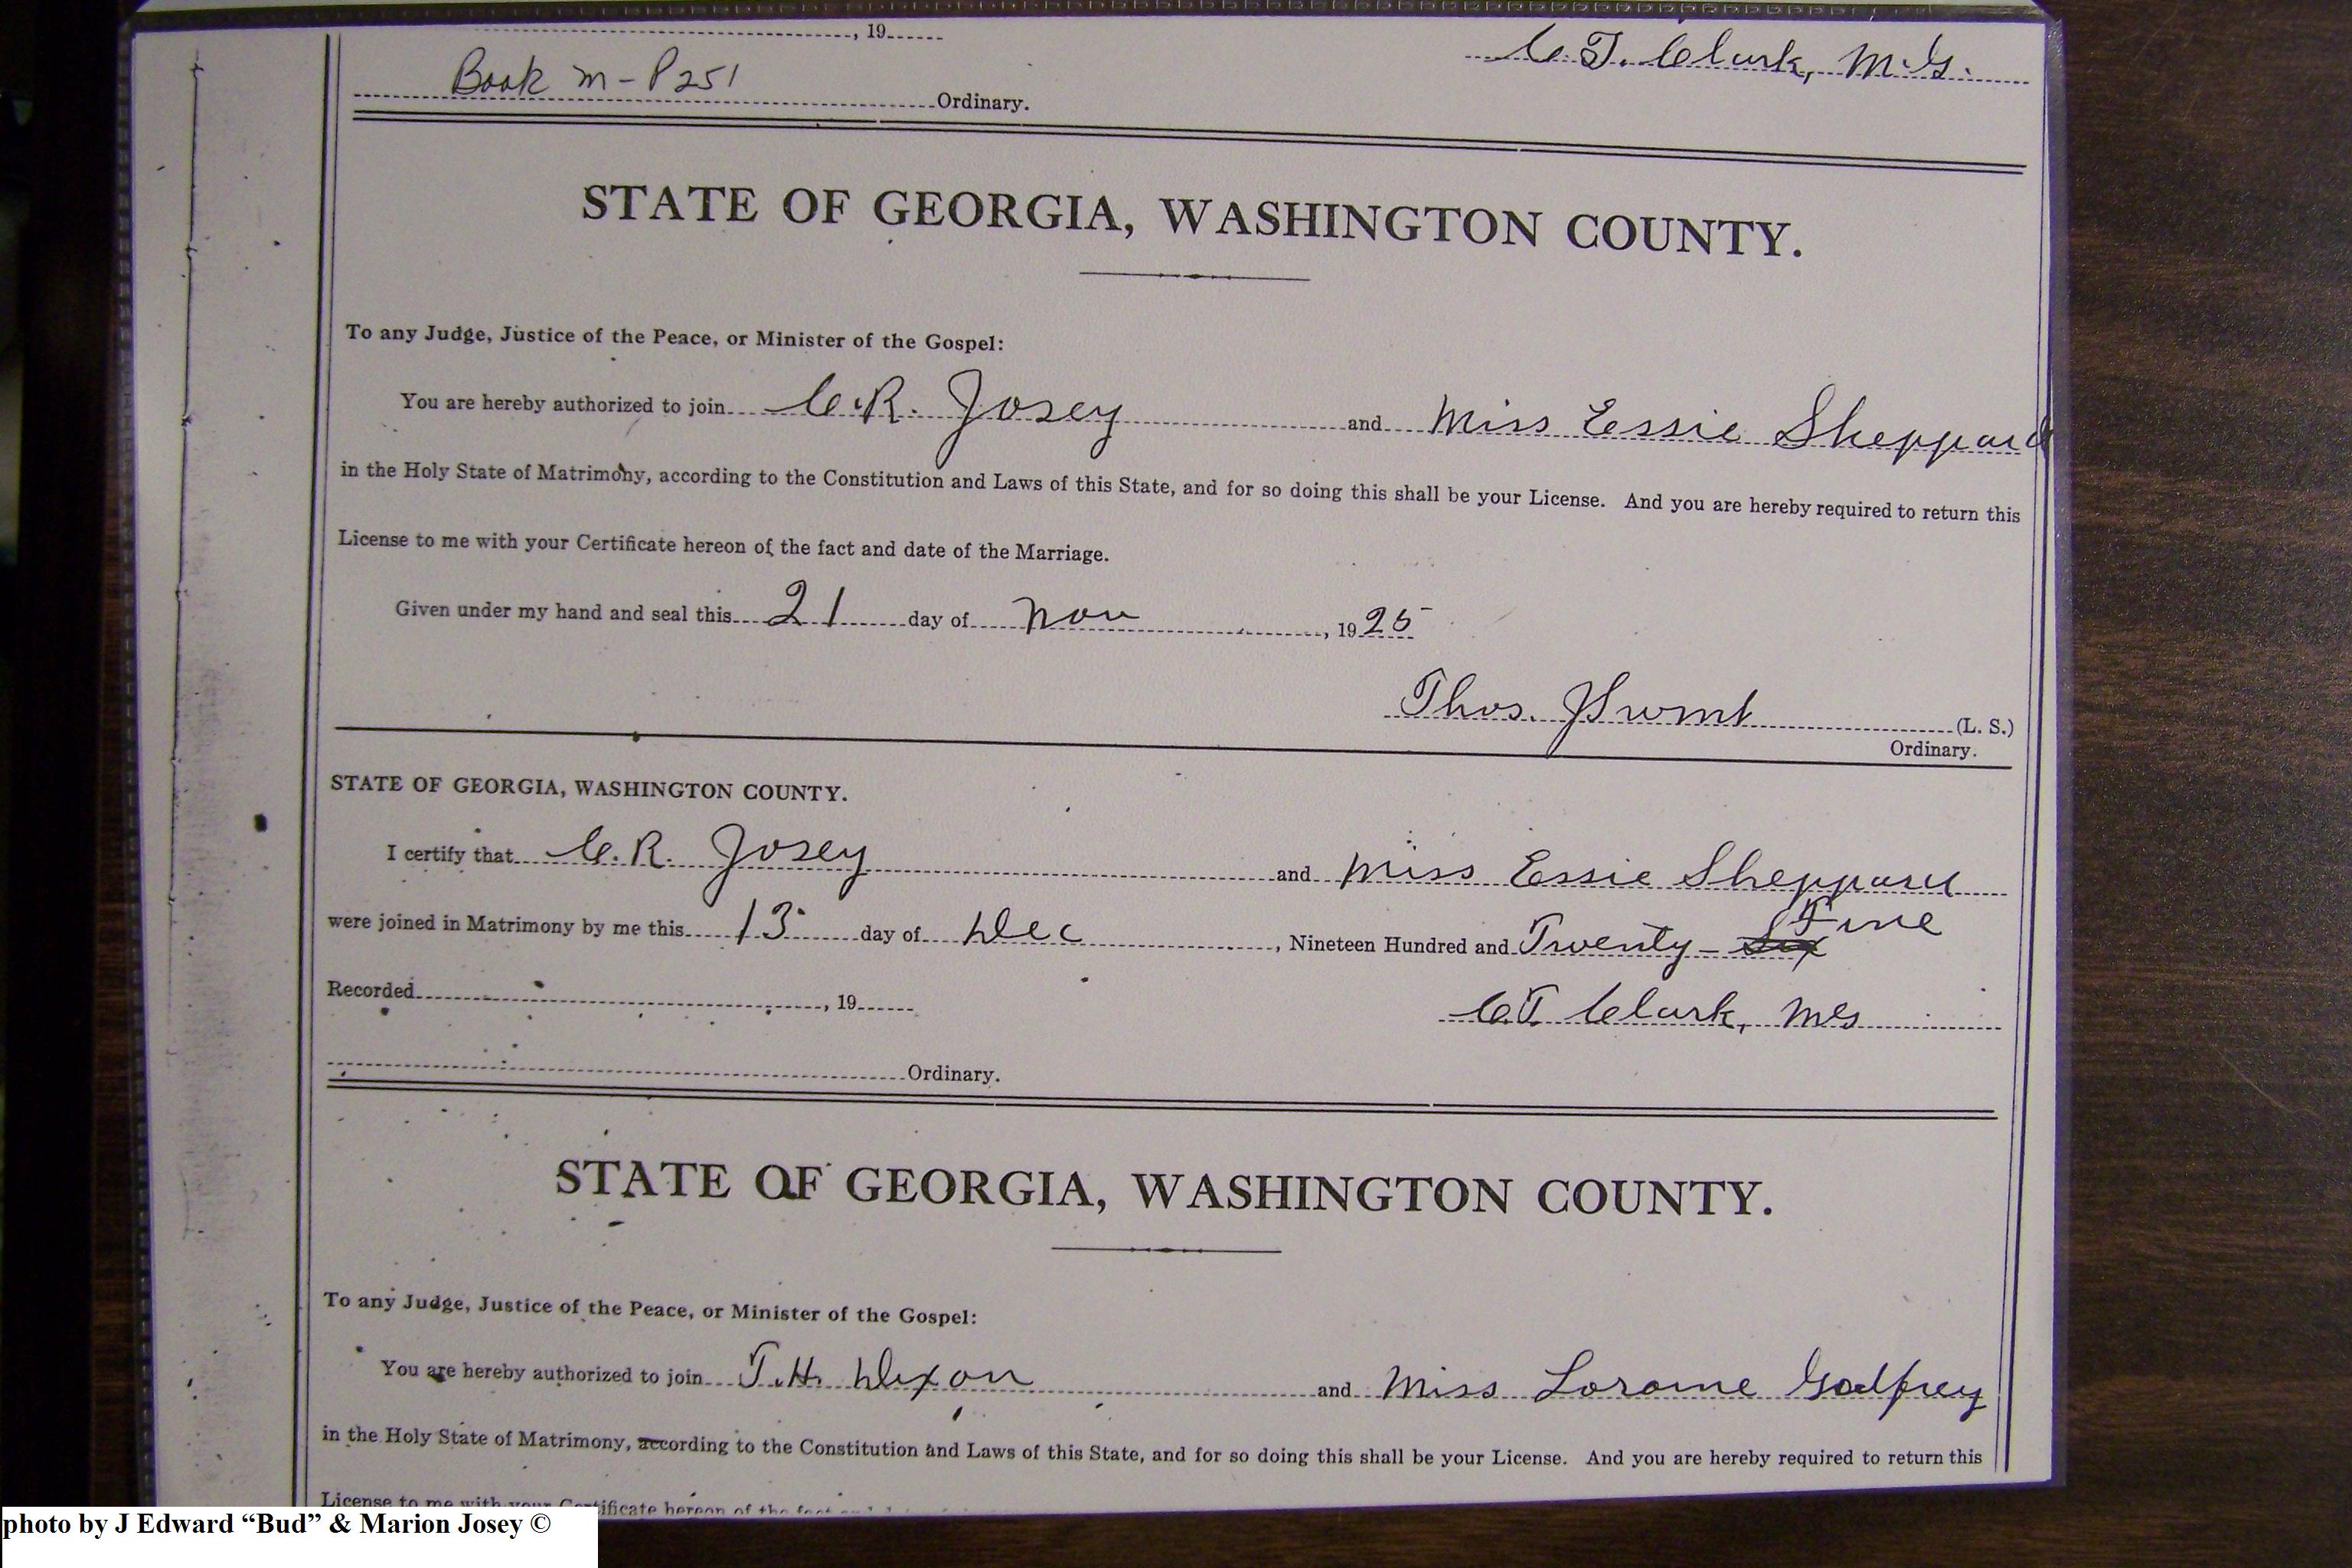 , 19
C. T. Clark, M.G.
Book M - P 251
Ordinary.
STATE OF GEORGIA, WASHINGTON COUNTY.
To any Judge, Justice of the Peace, or Minister of the Gospel:
You are hereby authorized to join C. R. Josey and Miss Essie Sheppard
in the Holy State of Matrimony, according to the Constitution and Laws of this State, and for so doing this shall be your License. And you are hereby required to return this
License to me with your Certificate hereon of the fact and date of the Marriage.
Given under my hand and seal this 21 day of Nov , 19 25
Thos. (L. S.)
Ordinary.
STATE OF GEORGIA, WASHINGTON COUNTY.
I certify that C. R. Josey and Miss Essie Sheppard
were joined in Matrimony by me this 13 day of Dec , Nineteen Hundred and Twenty - Six Five
Recorded , 19
C. T. Clark, MG
Ordinary.
STATE OF GEORGIA, WASHINGTON COUNTY.
To any Judge, Justice of the Peace, or Minister of the Gospel:
You are hereby authorized to join T. H. Dixon and Miss Loraine Godfrey
in the Holy State of Matrimony, according to the Constitution and Laws of this State, and for so doing this shall be your License. And you are hereby required to return this
License to me with your Certificate hereon of the fact and
photo by J Edward “Bud” & Marion Josey ©